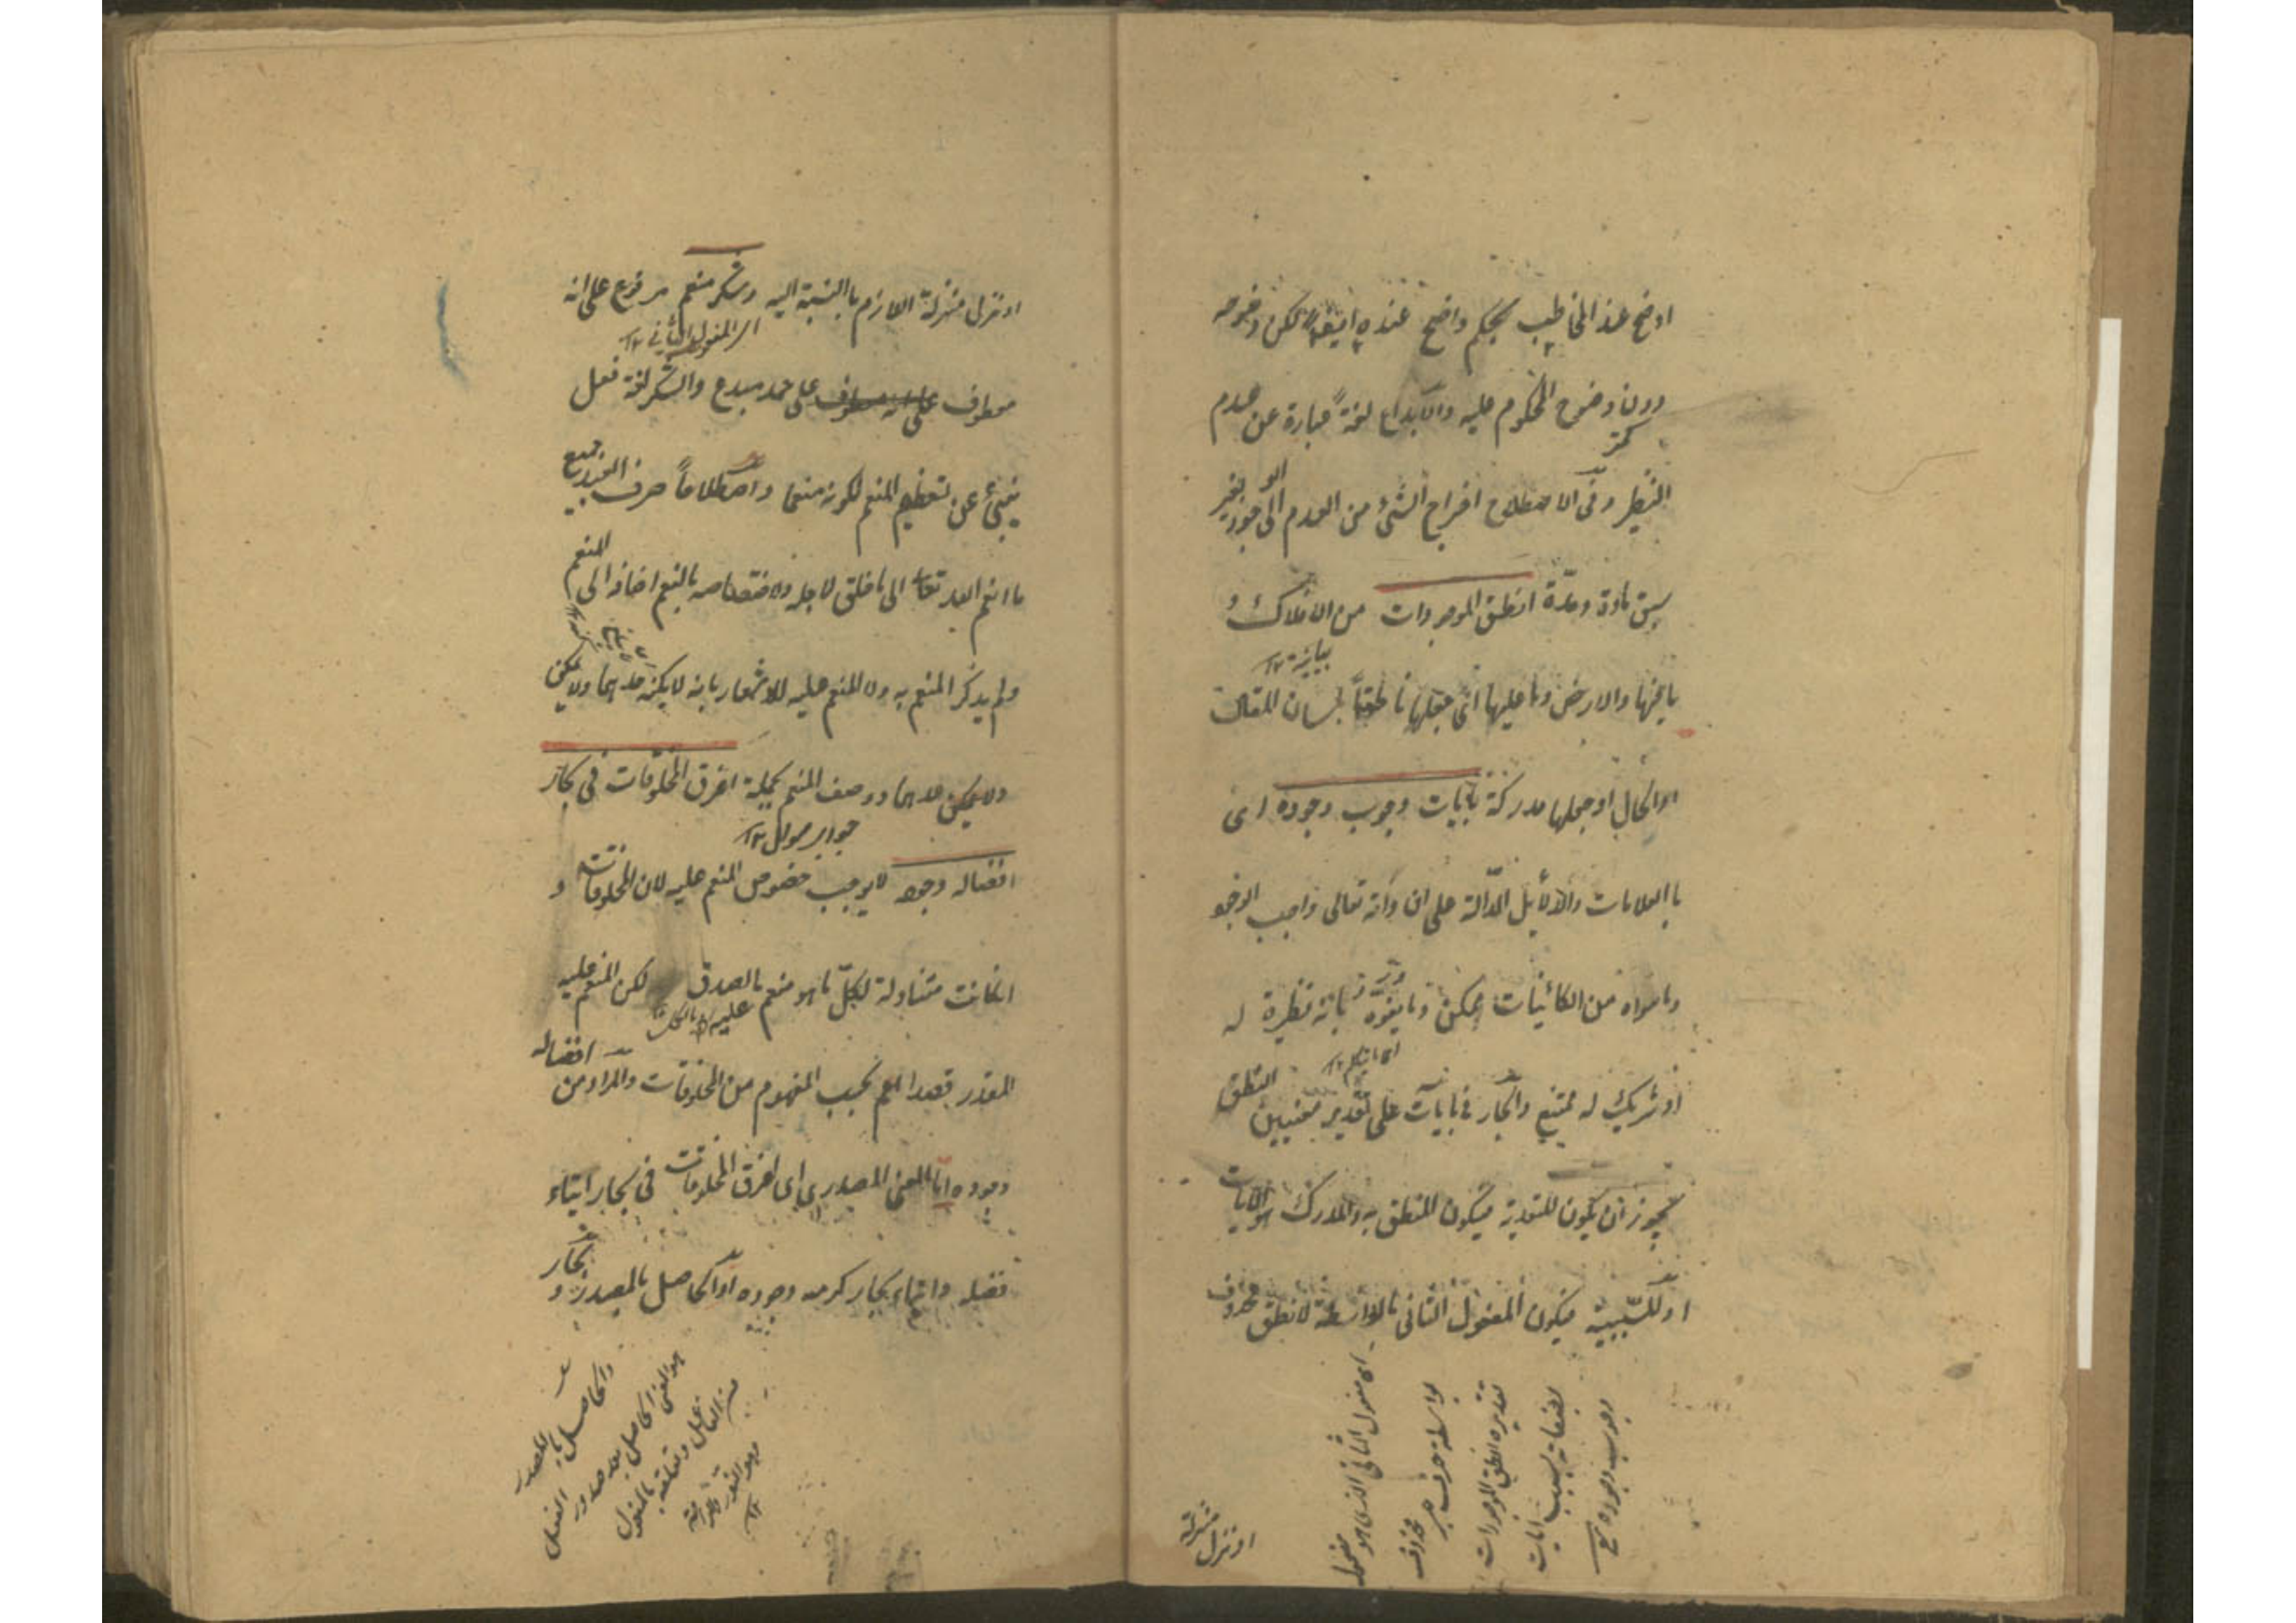 اوضح عند المخاطب بحكم واضح عنده ايضا لكن وضوحه
دون وضوح المحكوم عليه والابداع لغةً عبارة عن عدم
النظير وفى الاصطلاح اخراج الشئ من العدم الى الوجود بغير
سبق مادة ومدّة انطق الموجودات من الافلاك و
بيانية ١٢
ما فيها والارض وما عليها اى جعلها ناطقاً بلسان المقال
او الحال او جعلها مدركة بآيات وجوب وجوده اى
بالعلامات والدلائل الدّالة على ان ذاته تعالى واجب الوجو
وما سواه من الكائنات ممكن وما يتفوّه بانه نظيرة له
اى يتكلم ١٢
او شريك له ممتنع والجار فى بآيات على تقدير معنيين النطق
يجوز ان يكون للتعدية فيكون المنطق به والمدرك هو الآيات
او للسّببية فيكون المفعول الثانى بالواسطة لانطق محذوف
اى مفعول الثانى الذى هو مفعول
بواسطة حرف جر محذوف
تقديره انطق الموجودات
بصفاته بسبب آيات
وجوب وجوده
او نزل منزلة
او نزل منزلة اللازم باالنسبة اليه وشكر منعم مرفوع على انه
اى المفعول الثانى ١٢
معطوف على حمد مبدع والشكر لغة فعل
ينبئ عن تعظيم المنعم لكونه منعما واصطلاحاً صرف العبد جميع
ما انعم الله تعالى الى ما خلق لاجله ولاختصاصه بالنعم اضافه الى المنعم
ولم يذكر المنعم به ولا المنعم عليه للاشعار بانه لا يمكن عدهما ولا يمكن
ولا يمكن عدهما ووصف المنعم بجملة اغرق المخلوقات فى بحار
جواب سوال ١٢
افضاله وجوده لا يوجب خصوص المنعم عليه لان المخلوقات و
انكانت متناولة لكلّ ما هو منعم عليه بالصدق لكن المنعم عليه
المقدر قصدا اعم بحسب المفهوم من المخلوقات والمراد من افضاله
وجوده اما المعنى المصدرى اى اغرق المخلوقات فى بحار ايتاء
فضله وايتاء بحار كرمه وجوده او الحاصل بالمصدر و بحار
والحاصل بالمصدر
هو المعنى الحاصل بعد صدور الفعل
من الفاعل وتعلقه بالمفعول